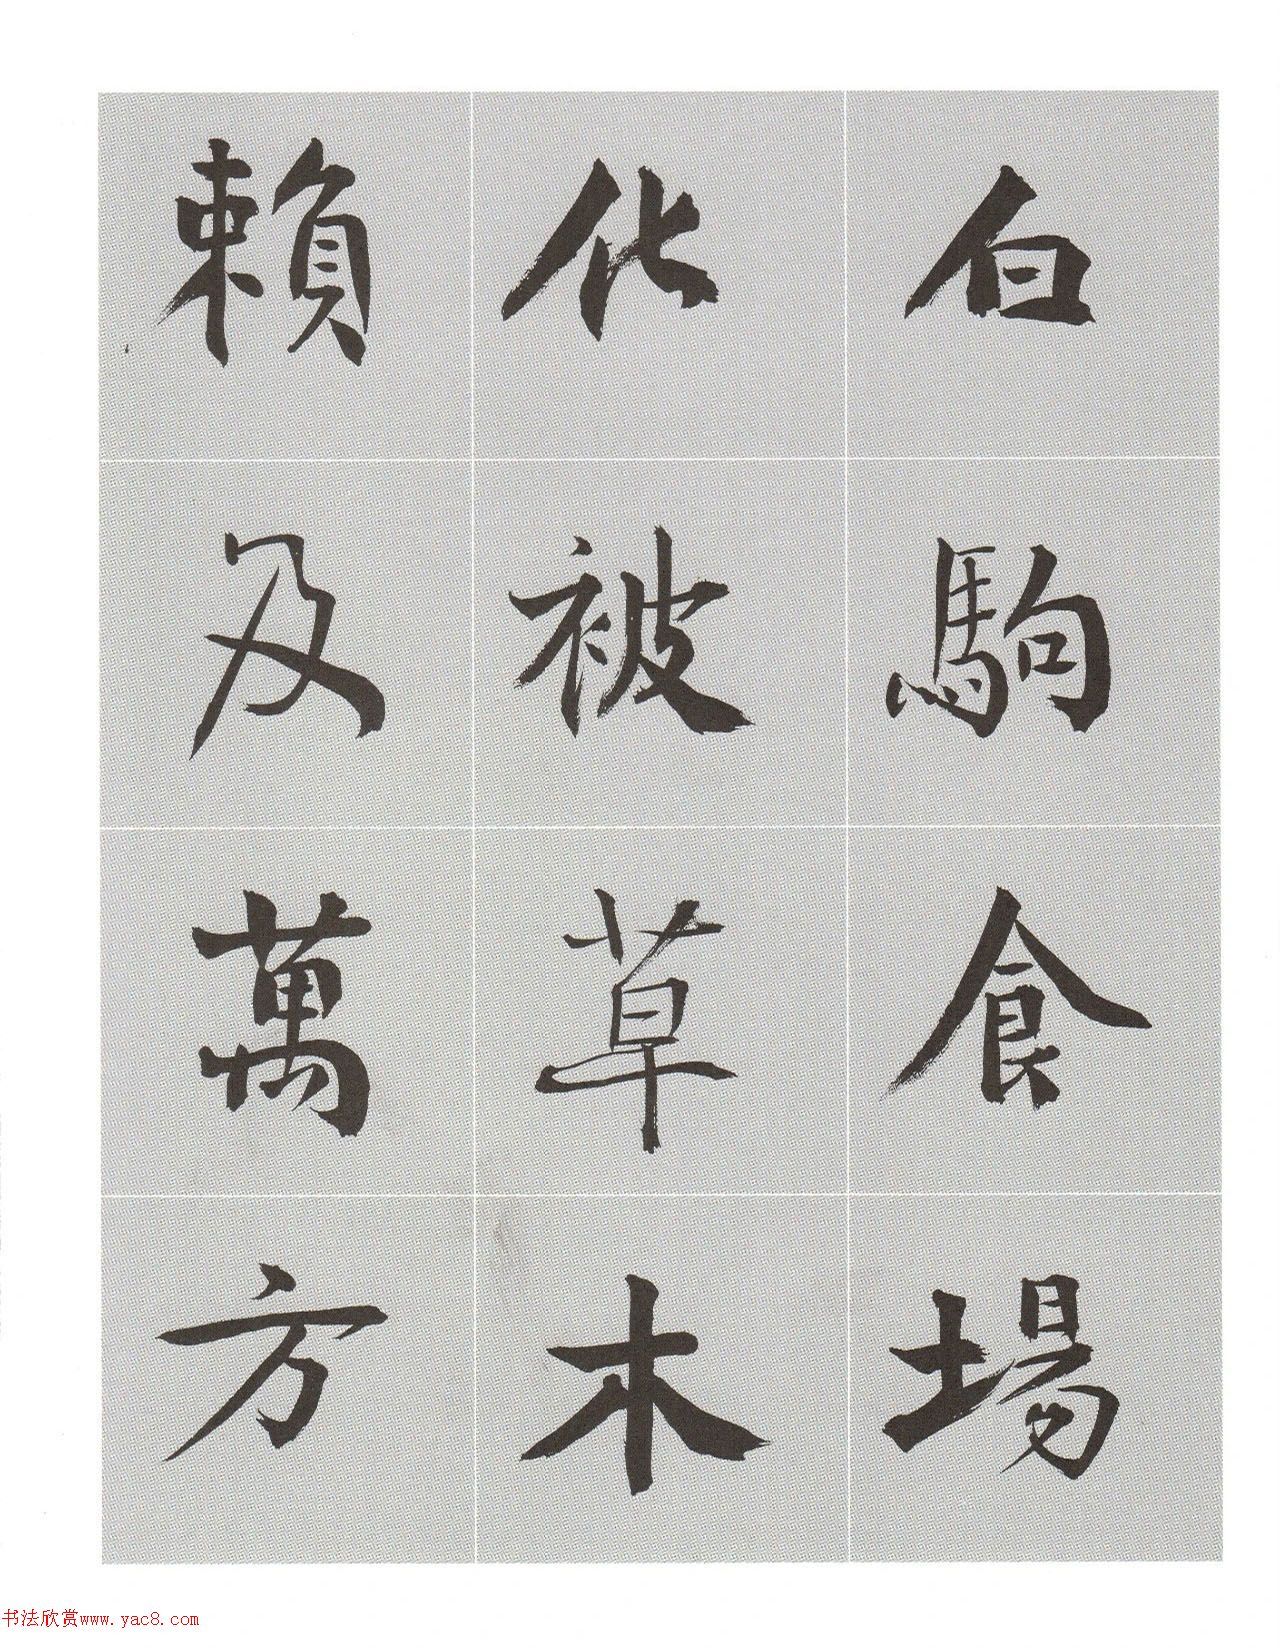 白駒食場
化被草木
賴及萬方
书法欣赏www.yac8.com